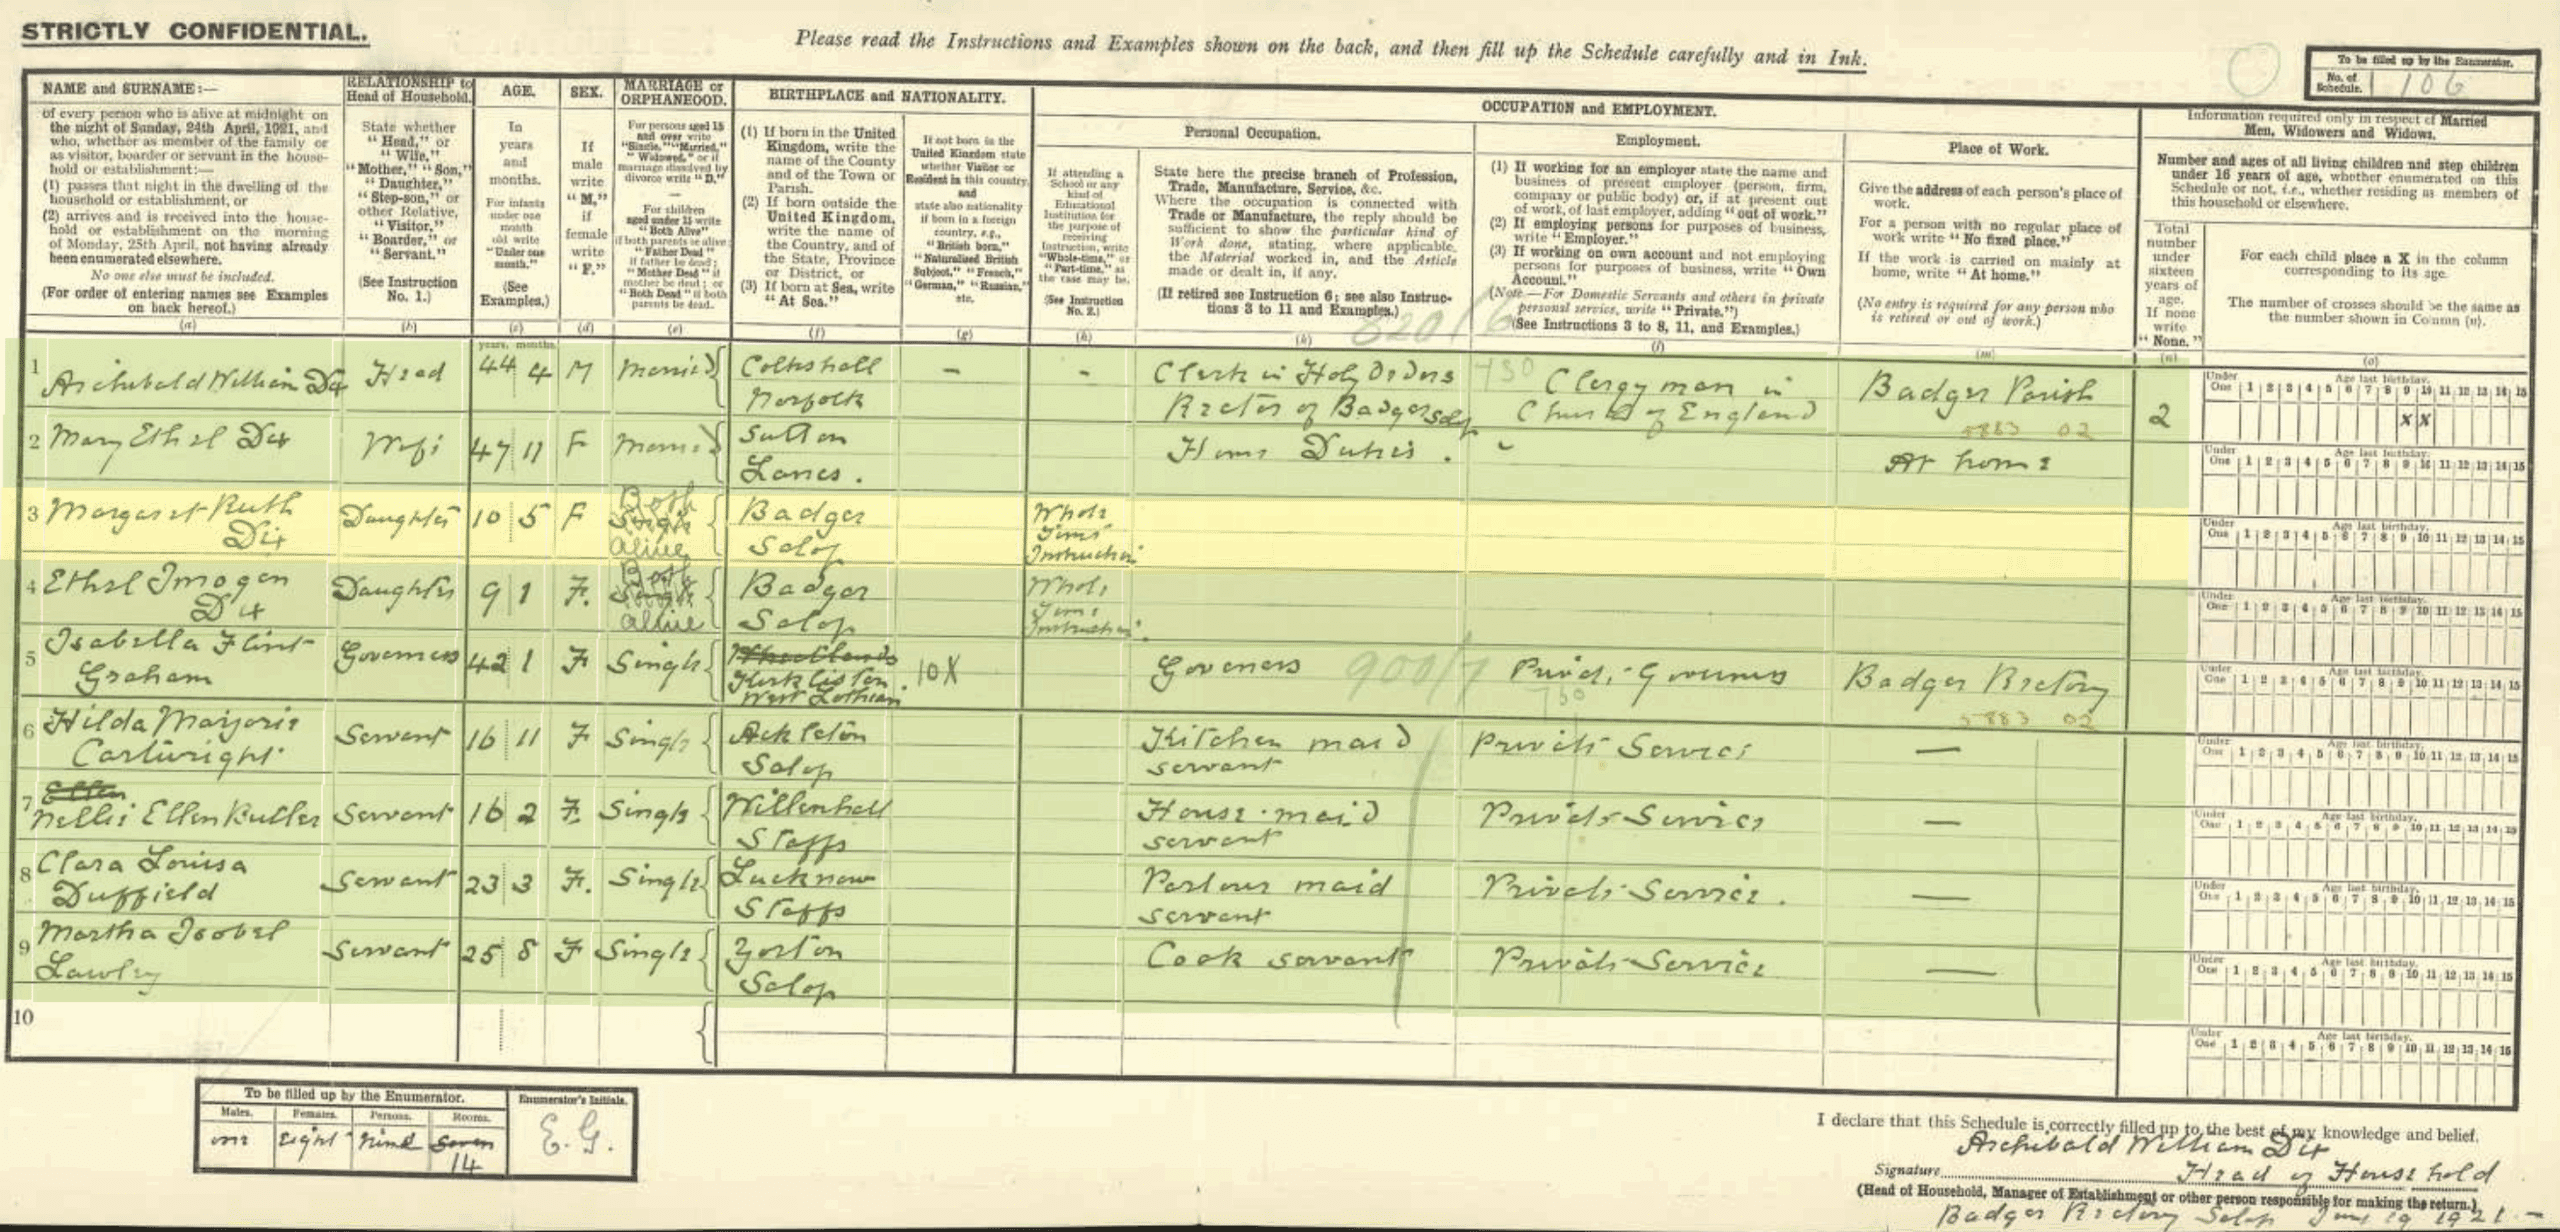 STRICTLY CONFIDENTIAL.
Please read the Instructions and Examples shown on the back, and then fill up the Schedule carefully and in Ink.
To be filled up by the Enumerator.
No. of Schedule. 106
NAME and SURNAME:—
of every person who is alive at midnight on
the night of Sunday, 24th April, 1921, and
who, whether as member of the family or
as visitor, boarder or servant in the house-
hold or establishment:—
(1) passes that night in the dwelling of the
household or establishment, or
(2) arrives and is received into the house-
hold or establishment on the morning
of Monday, 25th April, not having already
been enumerated elsewhere.
No one else must be included.
(For order of entering names see Examples
on back hereof.)
(a)
RELATIONSHIP to
Head of Household.
State whether
"Head," or
"Wife,"
"Mother," "Son,"
"Daughter,"
"Step-son," or
other Relative,
"Visitor,"
"Boarder," or
"Servant."
(See Instruction
No. 1.)
(b)
AGE.
In
years
and
months.
For infants
under one
month
old write
"Under one
month."
(See
Examples.)
(c)
years. months.
SEX.
If
male
write
"M,"
if
female
write
"F."
(d)
MARRIAGE or
ORPHANHOOD.
For persons aged 15
and over write
"Single," "Married,"
"Widowed," or if
marriage dissolved by
divorce write "D."
For children
aged under 15 write
"Both Alive"
if both parents be alive;
"Father Dead"
if father be dead;
"Mother Dead" if
mother be dead; or
"Both Dead" if both
parents be dead.
(e)
BIRTHPLACE and NATIONALITY.
(1) If born in the United
Kingdom, write the
name of the County
and of the Town or
Parish.
(2) If born outside the
United Kingdom,
write the name of
the Country, and of
the State, Province
or District, or
(3) If born at Sea, write
"At Sea."
(f)
If not born in the
United Kingdom state
whether Visitor or
Resident in this country,
and
state also nationality
if born in a foreign
country, e.g.,
"British born,"
"Naturalised British
Subject," "French,"
"German," "Russian,"
etc.
(g)
OCCUPATION and EMPLOYMENT.
If attending a
School or any
kind of
Educational
Institution for
the purpose of
receiving
Instruction, write
"Whole-time," or
"Part-time," as
the case may be.
(See Instruction
No. 2.)
(h)
Personal Occupation.
State here the precise branch of Profession,
Trade, Manufacture, Service, &c.
Where the occupation is connected with
Trade or Manufacture, the reply should be
sufficient to show the particular kind of
Work done, stating, where applicable,
the Material worked in, and the Article
made or dealt in, if any.
(If retired see Instruction 6; see also Instruc-
tions 3 to 11 and Examples.)
(k)
Employment.
(1) If working for an employer state the name and
business of present employer (person, firm,
company or public body) or, if at present out
of work, of last employer, adding "out of work."
(2) If employing persons for purposes of business,
write "Employer."
(3) If working on own account and not employing
persons for purposes of business, write "Own
Account."
(Note—For Domestic Servants and others in private
personal service, write "Private.")
(See Instructions 3 to 8, 11, and Examples.)
(l)
Place of Work.
Give the address of each person's place of
work.
For a person with no regular place of
work write "No fixed place."
If the work is carried on mainly at
home, write "At home."
(No entry is required for any person who
is retired or out of work.)
(m)
Information required only in respect of Married
Men, Widowers and Widows.
Number and ages of all living children and step children
under 16 years of age, whether enumerated on this
Schedule or not, i.e., whether residing as members of
this household or elsewhere.
Total
number
under
sixteen
years of
age.
If none
write
"None."
(n)
For each child place a X in the column
corresponding to its age.
The number of crosses should be the same as
the number shown in Column (n).
(o)
820/6
1 Archibald William Dix Head 44 4 M Married Coltishall Norfolk - - Clerk in Holy Orders Rector of Badger Salop 730 Clergyman in Church of England Badger Parish 5883 02 2 X X
2 Mary Ethel Dix Wife 47 11 F Married Sutton Lancs. Home Duties. At home
3 Margaret Ruth Dix Daughter 10 5 F Both alive Badger Salop Whole Time Instruction
4 Ethel Imogen Dix Daughter 9 1 F. Both alive Badger Salop Whole Time Instruction.
5 Isabella Flint Graham Governess 42 1 F Single Kirkliston West Lothian 10X Governess 900/7 Private Governess 730 Badger Rectory 5883 02
6 Hilda Marjorie Cartwright Servant 16 11 F Single Ackleton Salop Kitchen maid servant Private Service —
7 Ellen Nellie Ellen Butler Servant 16 2 F. Single Willenhall Staffs House-maid servant Private Service —
8 Clara Louisa Duffield Servant 23 3 F. Single Lucknow Staffs Parlour maid servant Private Service. —
9 Martha Isobel Lawley Servant 25 8 F Single Yorton Salop Cook servant Private Service —
10
Under One 1 2 3 4 5 6 7 8 9 10 11 12 13 14 15
Age last birthday.
To be filled up by the Enumerator.
Males. Females. Persons. Rooms.
one Eight Nine Seven
14
Enumerator's Initials.
E.G.
I declare that this Schedule is correctly filled up to the best of my knowledge and belief.
Archibald William Dix
Signature Head of Household
(Head of Household, Manager of Establishment or other person responsible for making the return.)
Badger Rectory Salop June 19 1921